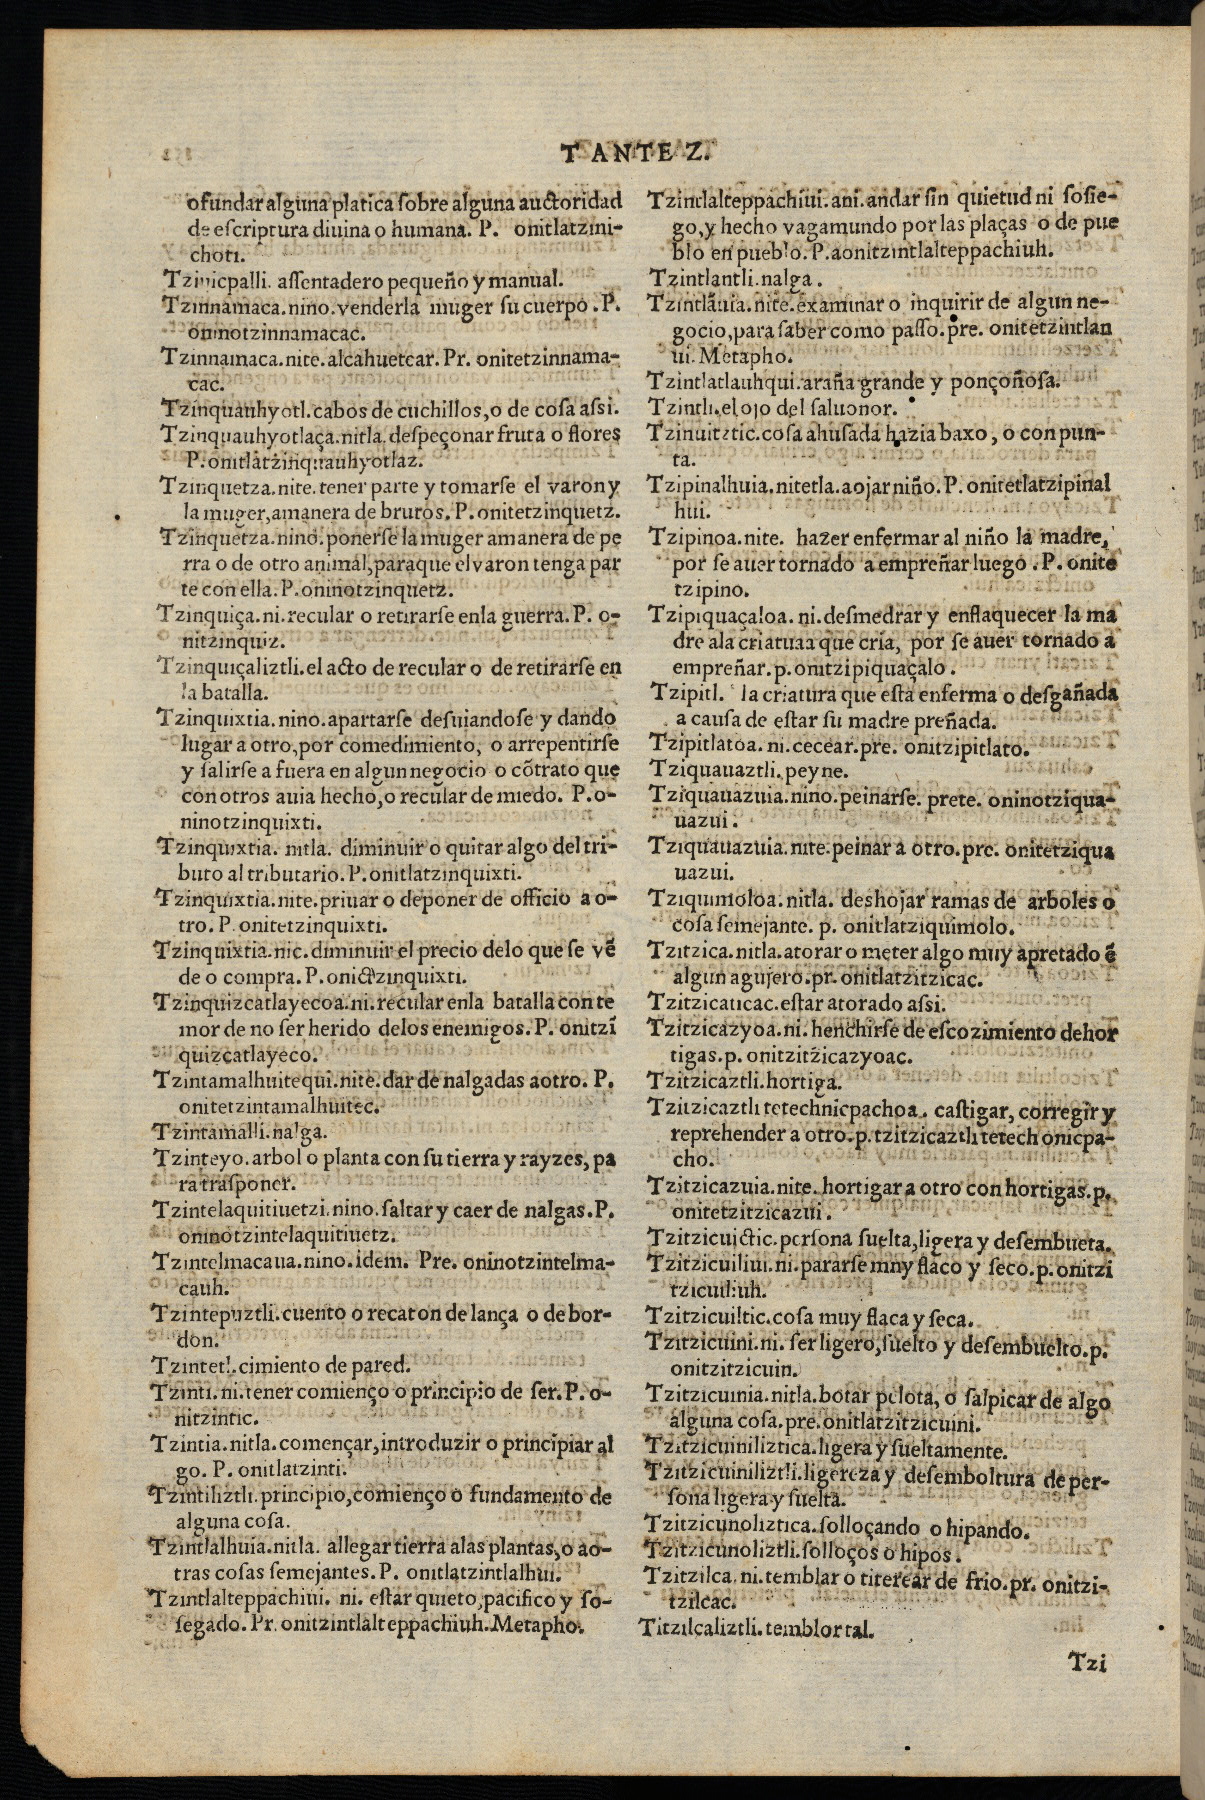 T ANTE Z.
ofundar alguna platica ſobre alguna auctoridad
de eſcriptura diuina o humana. P. onitlatzini-
choti.
Tzinicpalli. aſſentadero pequeño y manual.
Tzinnamaca.nino.venderla muger ſu cuerpo. P.
oninotzinnamacac.
Tzinnamaca.nite.alcahuetear. Pr. onitetzinnama-
cac.
Tzinquauhyotl.cabos de cuchillos,o de coſa aſſi.
Tzinquauhyotlaça.nitla.deſpeçonar fruta o flores
P.onitlatzinquauhyotlaz.
Tzinquetza.nite.tener parte y tomarſe el varon y
la muger,amanera de brutos. P.onitetzinquetz.
Tzinquetza.nino.ponerſe la muger amanera de pe
rra o de otro animal,paraque el varon tenga par
te con ella. P.oninotzinquetz.
Tzinquiça.ni.recular o retirarſe enla guerra. P. o-
nitzinquiz.
Tzinquiçaliztli.el acto de recular o de retirarſe en
la batalla.
Tzinquixtia.nino.apartarſe deſuiandoſe y dando
lugar a otro,por comedimiento, o arrepentirſe
y ſalirſe a fuera en algun negocio o cõtrato que
con otros auia hecho,o recular de miedo. P.o-
ninotzinquixti.
Tzinquixtia. nitla. diminuir o quitar algo del tri-
buto al tributario. P.onitlatzinquixti.
Tzinquixtia.nite.priuar o deponer de officio a o-
tro. P.onitetzinquixti.
Tzinquixtia.nic.diminuir el precio delo que ſe vẽ
de o compra. P.onictzinquixti.
Tzinquizcatlayecoa.ni.recular enla batalla con te
mor de no ſer herido delos enemigos. P. onitzĩ
quizcatlayeco.
Tzintamalhuitequi.nite.dar de nalgadas aotro. P.
onitetzintamalhuitec.
Tzintamalli.nalga.
Tzinteyo.arbol o planta con ſu tierra y rayzes, pa
ra traſponer.
Tzintelaquitiuetzi.nino.ſaltar y caer de nalgas.P.
oninotzintelaquitiuetz.
Tzintelmacaua.nino.idem. Pre. oninotzintelma-
cauh.
Tzintepuztli.cuento o recaton de lança o de bor-
don.
Tzintetl.cimiento de pared.
Tzinti.ni.tener comienço o principio de ſer.P. o-
nitzintic.
Tzintia.nitla.començar,introduzir o principiar al
go. P. onitlatzinti.
Tzintiliztli.principio,comienço o fundamento de
alguna coſa.
Tzintlalhuia.nitla. allegar tierra alas plantas,o ao-
tras coſas ſemejantes. P. onitlatzintlalhui.
Tzintlalteppachiui. ni. eſtar quieto,pacifico y ſo-
ſegado. Pr.onitzintlalteppachiuh.Metapho.
Tzintlalteppachiui.ani.andar ſin quietud ni ſoſie-
go,y hecho vagamundo por las plaças o de pue
blo en pueblo. P.aonitzintlalteppachiuh.
Tzintlantli.nalga.
Tzintlãuia.nite.examinar o inquirir de algun ne-
gocio,para ſaber como paſſo.pre. onitetzintlan
ui.Metapho.
Tzintlatlauhqui.araña grande y ponçoñoſa.
Tzintli.el ojo del ſaluonor.
Tzinuitztic.coſa ahuſada hazia baxo, o con pun-
ta.
Tzipinalhuia.nitetla.aojar niño. P.onitetlatzipinal
hui.
Tzipinoa.nite. hazer enfermar al niño la madre,
por ſe auer tornado a empreñar luego. P. onite
tzipino.
Tzipiquaçaloa. ni.deſmedrar y enflaquecer la ma
dre ala criatuaa que cria, por ſe auer tornado a
empreñar.p.onitzipiquaçalo.
Tzipitl. la criatura que eſta enferma o deſgañada
a cauſa de eſtar ſu madre preñada.
Tzipitlatoa.ni.cecear.pre. onitzipitlato.
Tziquauaztli.peyne.
Tziquauazuia.nino.peinarſe. prete. oninotziqua-
uazui.
Tziquauazuia.nite.peinar a otro.pre. onitetziqua
uazui.
Tziquimoloa.nitla. deshojar ramas de arboles o
coſa ſemejante. p. onitlatziquimolo.
Tzitzica.nitla.atorar o meter algo muy apretado ẽ
algun agujero.pr.onitlatzitzicac.
Tzitzicaticac.eſtar atorado aſſi.
Tzitzicazyoa.ni.henchirſe de eſcozimiento dehor
tigas.p.onitzitzicazyoac.
Tzitzicaztli.hortiga.
Tzitzicaztli tetechnicpachoa. caſtigar, corregir y
reprehender a otro.p.tzitzicaztli tetech onicpa-
cho.
Tzitzicazuia.nite.hortigar a otro con hortigas.p.
onitetzitzicazui.
Tzitzicuictic.perſona ſuelta,ligera y deſembueta.
Tzitzicuiliui.ni.pararſe mny flaco y ſeco.p.onitzi
tzicuiliuh.
Tzitzicuiltic.coſa muy flaca y ſeca.
Tzitzicuini.ni. ſer ligero,ſuelto y deſembuelto.p.
onitzitzicuin.
Tzitzicuinia.nitla.botar pelota, o ſalpicar de algo
alguna coſa.pre.onitlatzitzicuini.
Tzitzicuiniliztica.ligera y ſueltamente.
Tzitzicuiniliztli.ligereza y deſemboltura de per-
ſona ligera y ſuelta.
Tzitzicunoliztica.ſolloçando o hipando.
Tzitzicunoliztli.ſolloços o hipos.
Tzitzilca.ni.temblar o titerear de frio.pr. onitzi-
tzilcac.
Titzilcaliztli.temblor tal.
Tzi